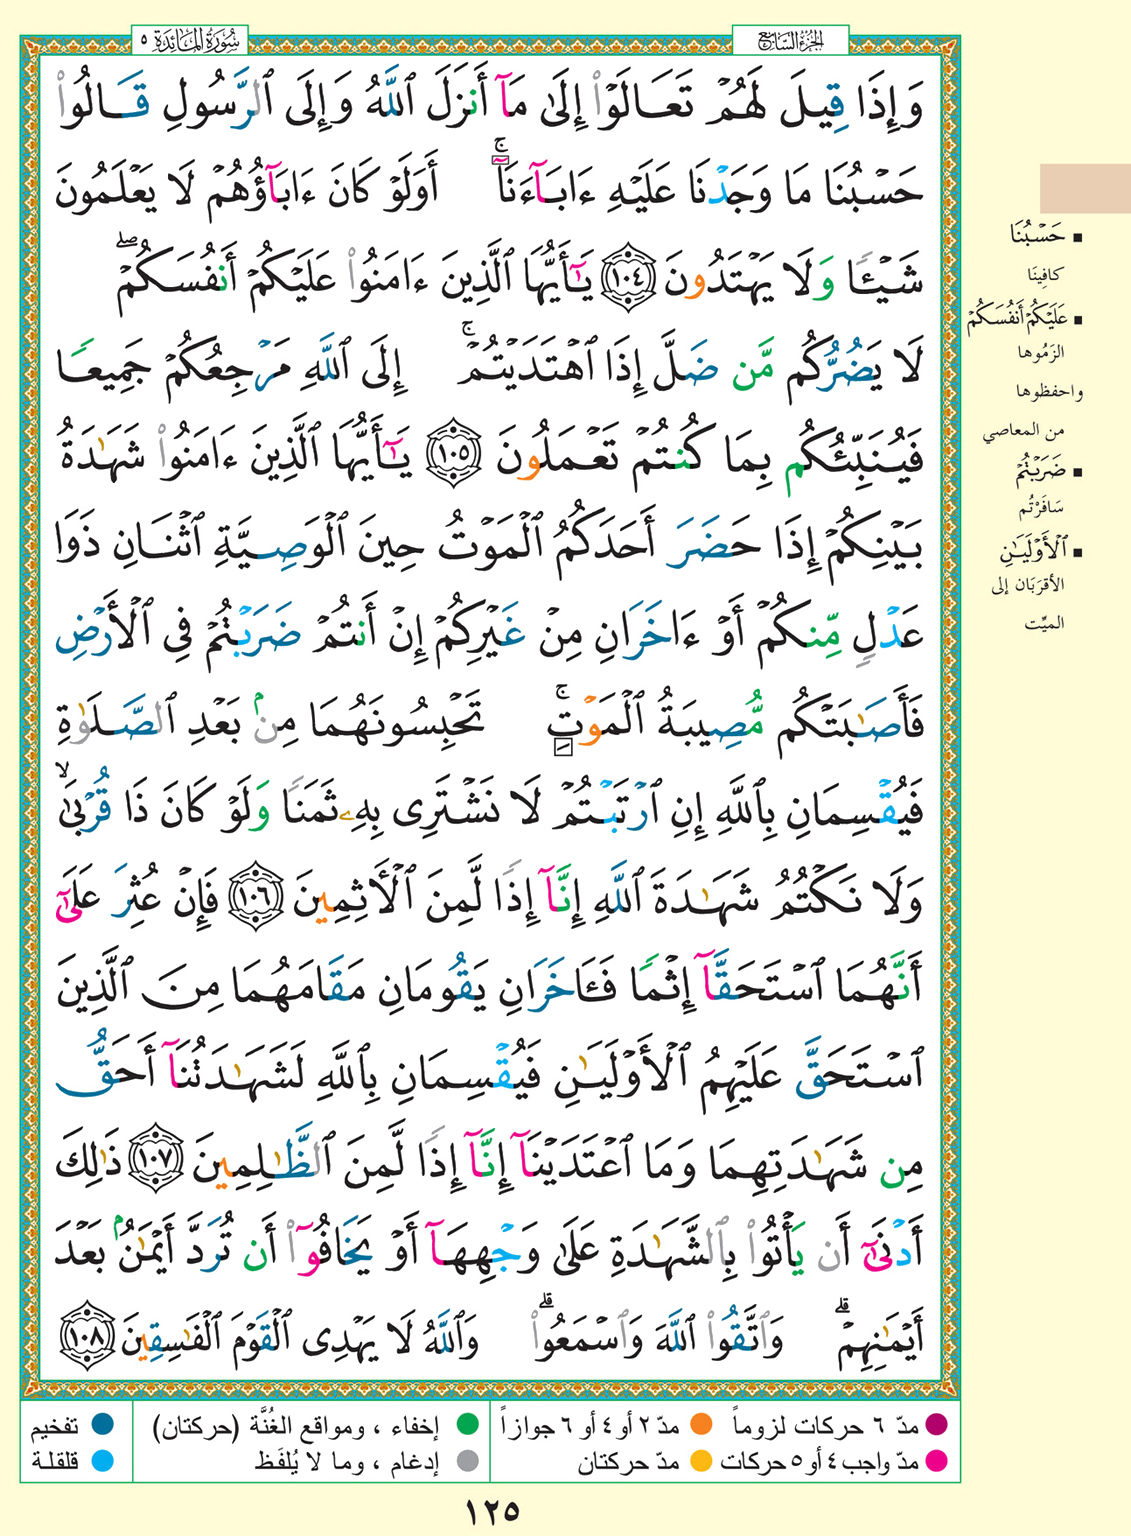 الجزء السابع
سُورَةُ المَائِدَة ٥
وَإِذَا قِيلَ لَهُمۡ تَعَالَوۡاْ إِلَىٰ مَآ أَنزَلَ ٱللَّهُ وَإِلَى ٱلرَّسُولِ قَالُواْ
حَسۡبُنَا مَا وَجَدۡنَا عَلَيۡهِ ءَابَآءَنَآۚ أَوَلَوۡ كَانَ ءَابَآؤُهُمۡ لَا يَعۡلَمُونَ
شَيۡـٔٗا وَلَا يَهۡتَدُونَ ١٠٤ يَـٰٓأَيُّهَا ٱلَّذِينَ ءَامَنُواْ عَلَيۡكُمۡ أَنفُسَكُمۡۖ
لَا يَضُرُّكُم مَّن ضَلَّ إِذَا ٱهۡتَدَيۡتُمۡۚ إِلَى ٱللَّهِ مَرۡجِعُكُمۡ جَمِيعٗا
فَيُنَبِّئُكُم بِمَا كُنتُمۡ تَعۡمَلُونَ ١٠٥ يَـٰٓأَيُّهَا ٱلَّذِينَ ءَامَنُواْ شَهَٰدَةُ
بَيۡنِكُمۡ إِذَا حَضَرَ أَحَدَكُمُ ٱلۡمَوۡتُ حِينَ ٱلۡوَصِيَّةِ ٱثۡنَانِ ذَوَا
عَدۡلٖ مِّنكُمۡ أَوۡ ءَاخَرَانِ مِنۡ غَيۡرِكُمۡ إِنۡ أَنتُمۡ ضَرَبۡتُمۡ فِي ٱلۡأَرۡضِ
فَأَصَٰبَتۡكُم مُّصِيبَةُ ٱلۡمَوۡتِۚ تَحۡبِسُونَهُمَا مِنۢ بَعۡدِ ٱلصَّلَوٰةِ
فَيُقۡسِمَانِ بِٱللَّهِ إِنِ ٱرۡتَبۡتُمۡ لَا نَشۡتَرِي بِهِۦ ثَمَنٗا وَلَوۡ كَانَ ذَا قُرۡبَىٰۙ
وَلَا نَكۡتُمُ شَهَٰدَةَ ٱللَّهِ إِنَّآ إِذٗا لَّمِنَ ٱلۡأٓثِمِينَ ١٠٦ فَإِنۡ عُثِرَ عَلَىٰٓ
أَنَّهُمَا ٱسۡتَحَقَّآ إِثۡمٗا فَـَٔاخَرَانِ يَقُومَانِ مَقَامَهُمَا مِنَ ٱلَّذِينَ
ٱسۡتَحَقَّ عَلَيۡهِمُ ٱلۡأَوۡلَيَٰنِ فَيُقۡسِمَانِ بِٱللَّهِ لَشَهَٰدَتُنَآ أَحَقُّ
مِن شَهَٰدَتِهِمَا وَمَا ٱعۡتَدَيۡنَآ إِنَّآ إِذٗا لَّمِنَ ٱلظَّٰلِمِينَ ١٠٧ ذَٰلِكَ
أَدۡنَىٰٓ أَن يَأۡتُواْ بِٱلشَّهَٰدَةِ عَلَىٰ وَجۡهِهَآ أَوۡ يَخَافُوٓاْ أَن تُرَدَّ أَيۡمَٰنُۢ بَعۡدَ
أَيۡمَٰنِهِمۡۗ وَٱتَّقُواْ ٱللَّهَ وَٱسۡمَعُواْۗ وَٱللَّهُ لَا يَهۡدِي ٱلۡقَوۡمَ ٱلۡفَٰسِقِينَ ١٠٨
حَسۡبُنَا
كافِينَا
عَلَيۡكُمۡ أَنفُسَكُمۡ
الزَمُوها
واحفظوها
من المعاصي
ضَرَبۡتُمۡ
سَافَرْتُم
ٱلۡأَوۡلَيَٰنِ
الأقرَبَان إلى
الميِّت
مدّ ٦ حركات لزوماً مدّ ٢ أو ٤ أو ٦ جوازاً إخفاء ، ومواقع الغُنَّة (حركتان) تفخيم
مدّ واجب ٤ أو ٥ حركات مدّ حركتان إدغام ، وما لا يُلفَظ قلقلة
١٢٥